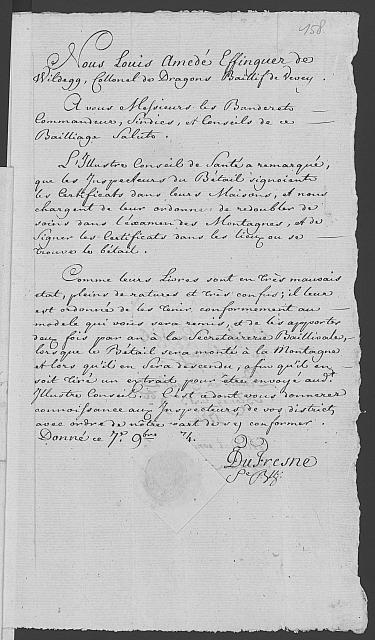 158.
Nous Louis Amedé Effinguer de
Wildegg, Collonel de Dragons Baillif de Vevey.
A vous Messieurs les Banderets
Commandeur, Sindics, et Conseils de ce
Bailliage Saluts.
L'Illustre Conseil de Santé a remarqué,
que les Inspecteurs du Bétail signoient
les Certificats dans leurs Maisons, et nous
chargent de leur ordonner de redoubler de
soins dans l'éxamen des Montagnes, et de
Signer les Certificats dans les lieux ou se
trouve le bétail.
Comme leurs Livres sont en très mauvais
état, pleins de ratures et très confus; il leur
est ordonné de les tenir conformement au
modele qui vous sera remis, et de les apporter
deux fois par an à la Secretairerie Baillivale,
lorsque le Bétail sera monté à la Montagne
et lors qu'il en sera descendu, afin qu'il en
soit tiré un extrait pour être envoyé audt
Illustre Conseil. C'est dont vous donnerez
connoissance aux Inspecteurs de vos districts
avec ordre de notre part de s'y conformer.
Donné ce 7e. 9bre 74.
DuFresne